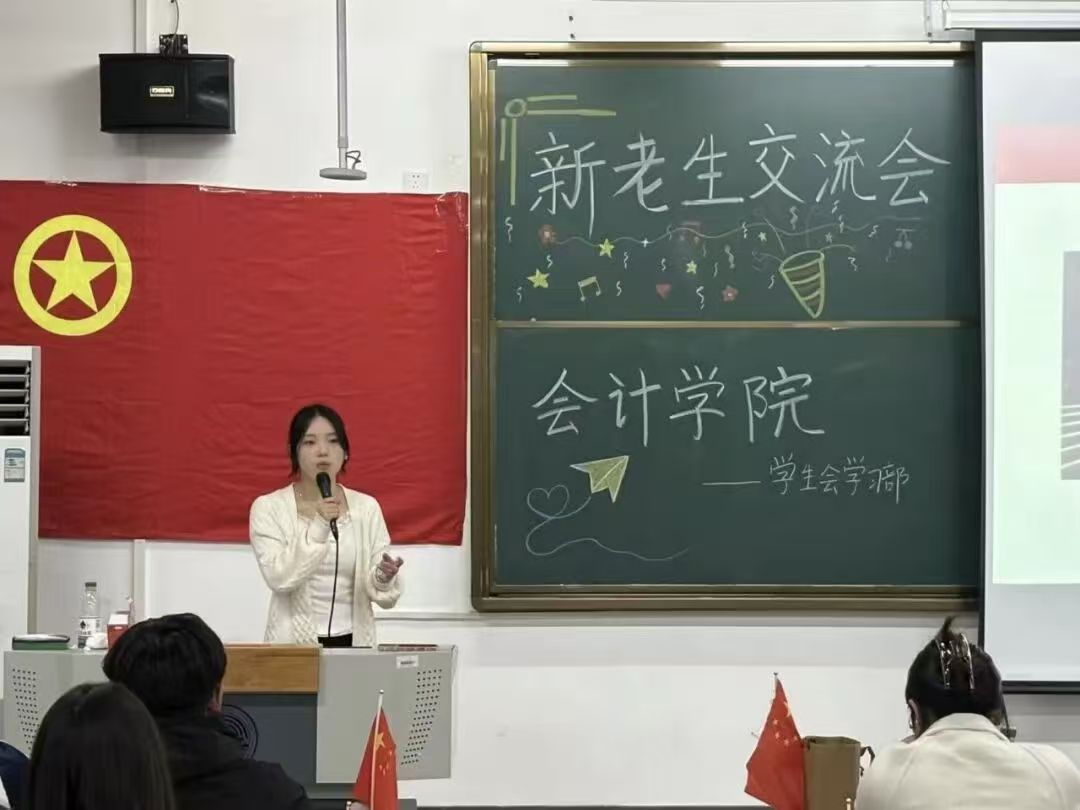 新老生交流会
会计学院
——学生会学习部